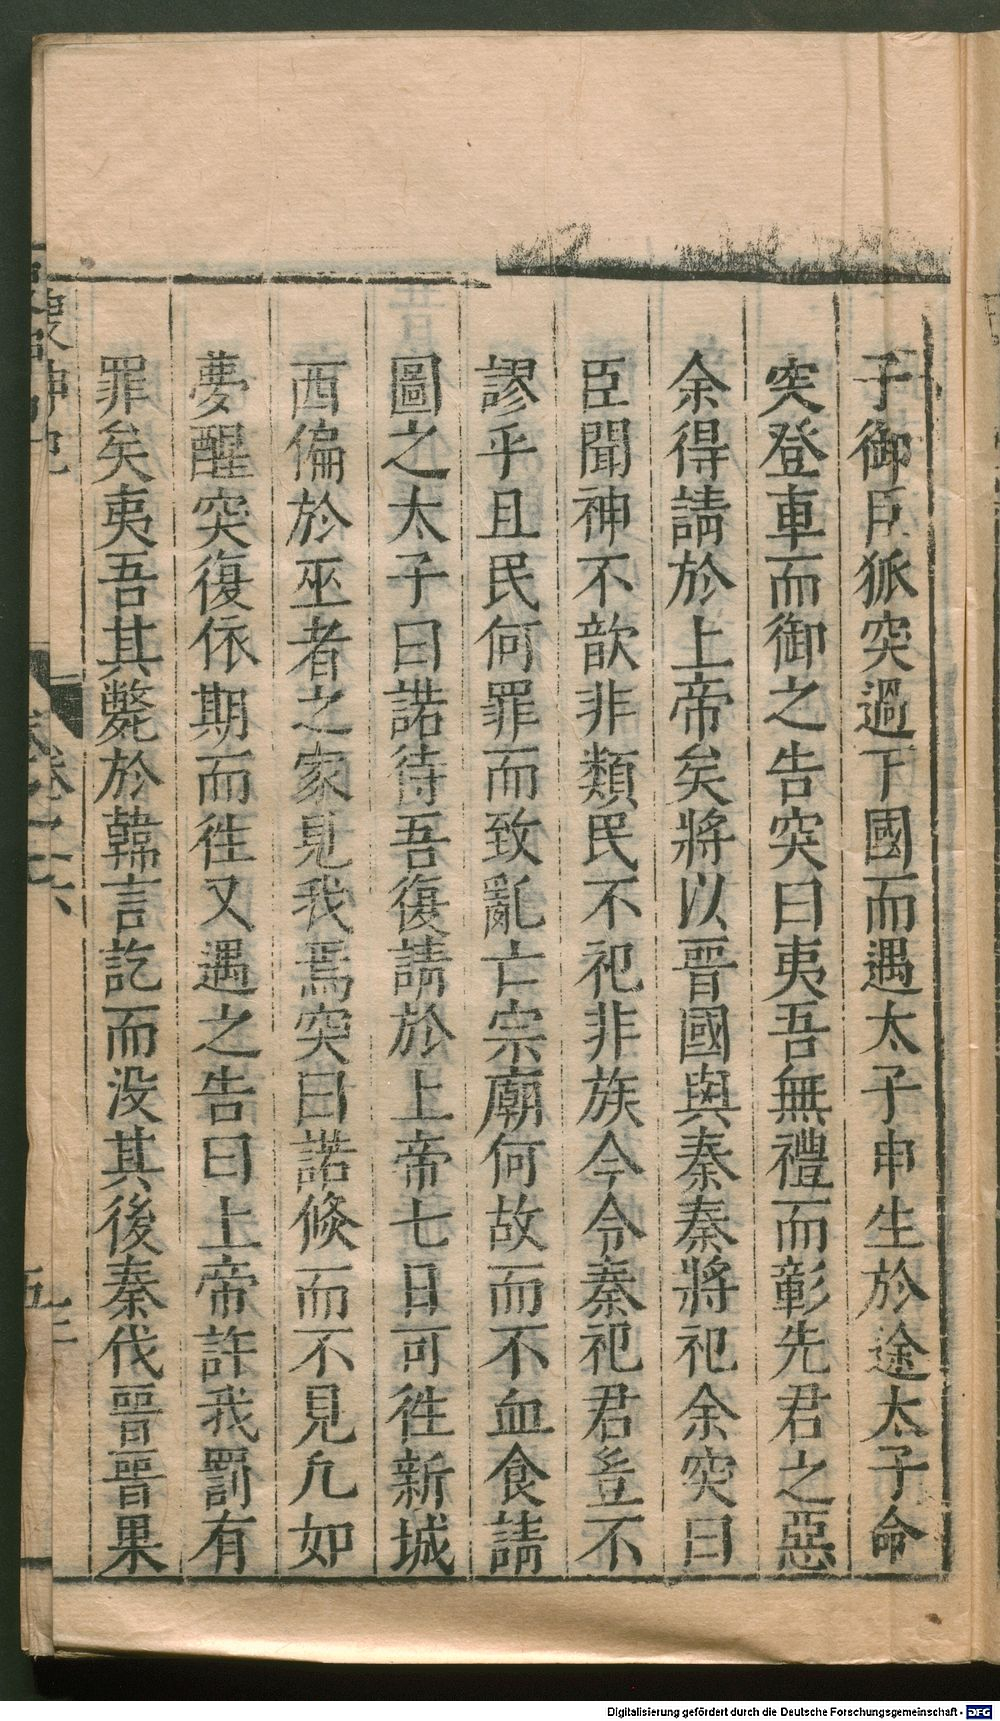 子御臣狐突過下國而遇太子申生於途太子命
突登車而御之告突曰夷吾無禮而彰先君之惡
余得請於上帝矣將以晋國與秦秦將祀余突曰
臣聞神不歆非類民不祀非族今令秦祀君豈不
謬乎且民何罪而致亂亡宗廟何故而不血食請
圖之太子曰諾待吾復請於上帝七日可徃新城
西偏於巫者之家見我焉突曰諾倐而不見凢如
夢醒突復依期而徃又遇之告曰上帝許我罰有
罪矣夷吾其斃於韓言訖而没其後秦伐晋晋果
Digitalisierung gefördert durch die Deutsche Forschungsgemeinschaft - DFG